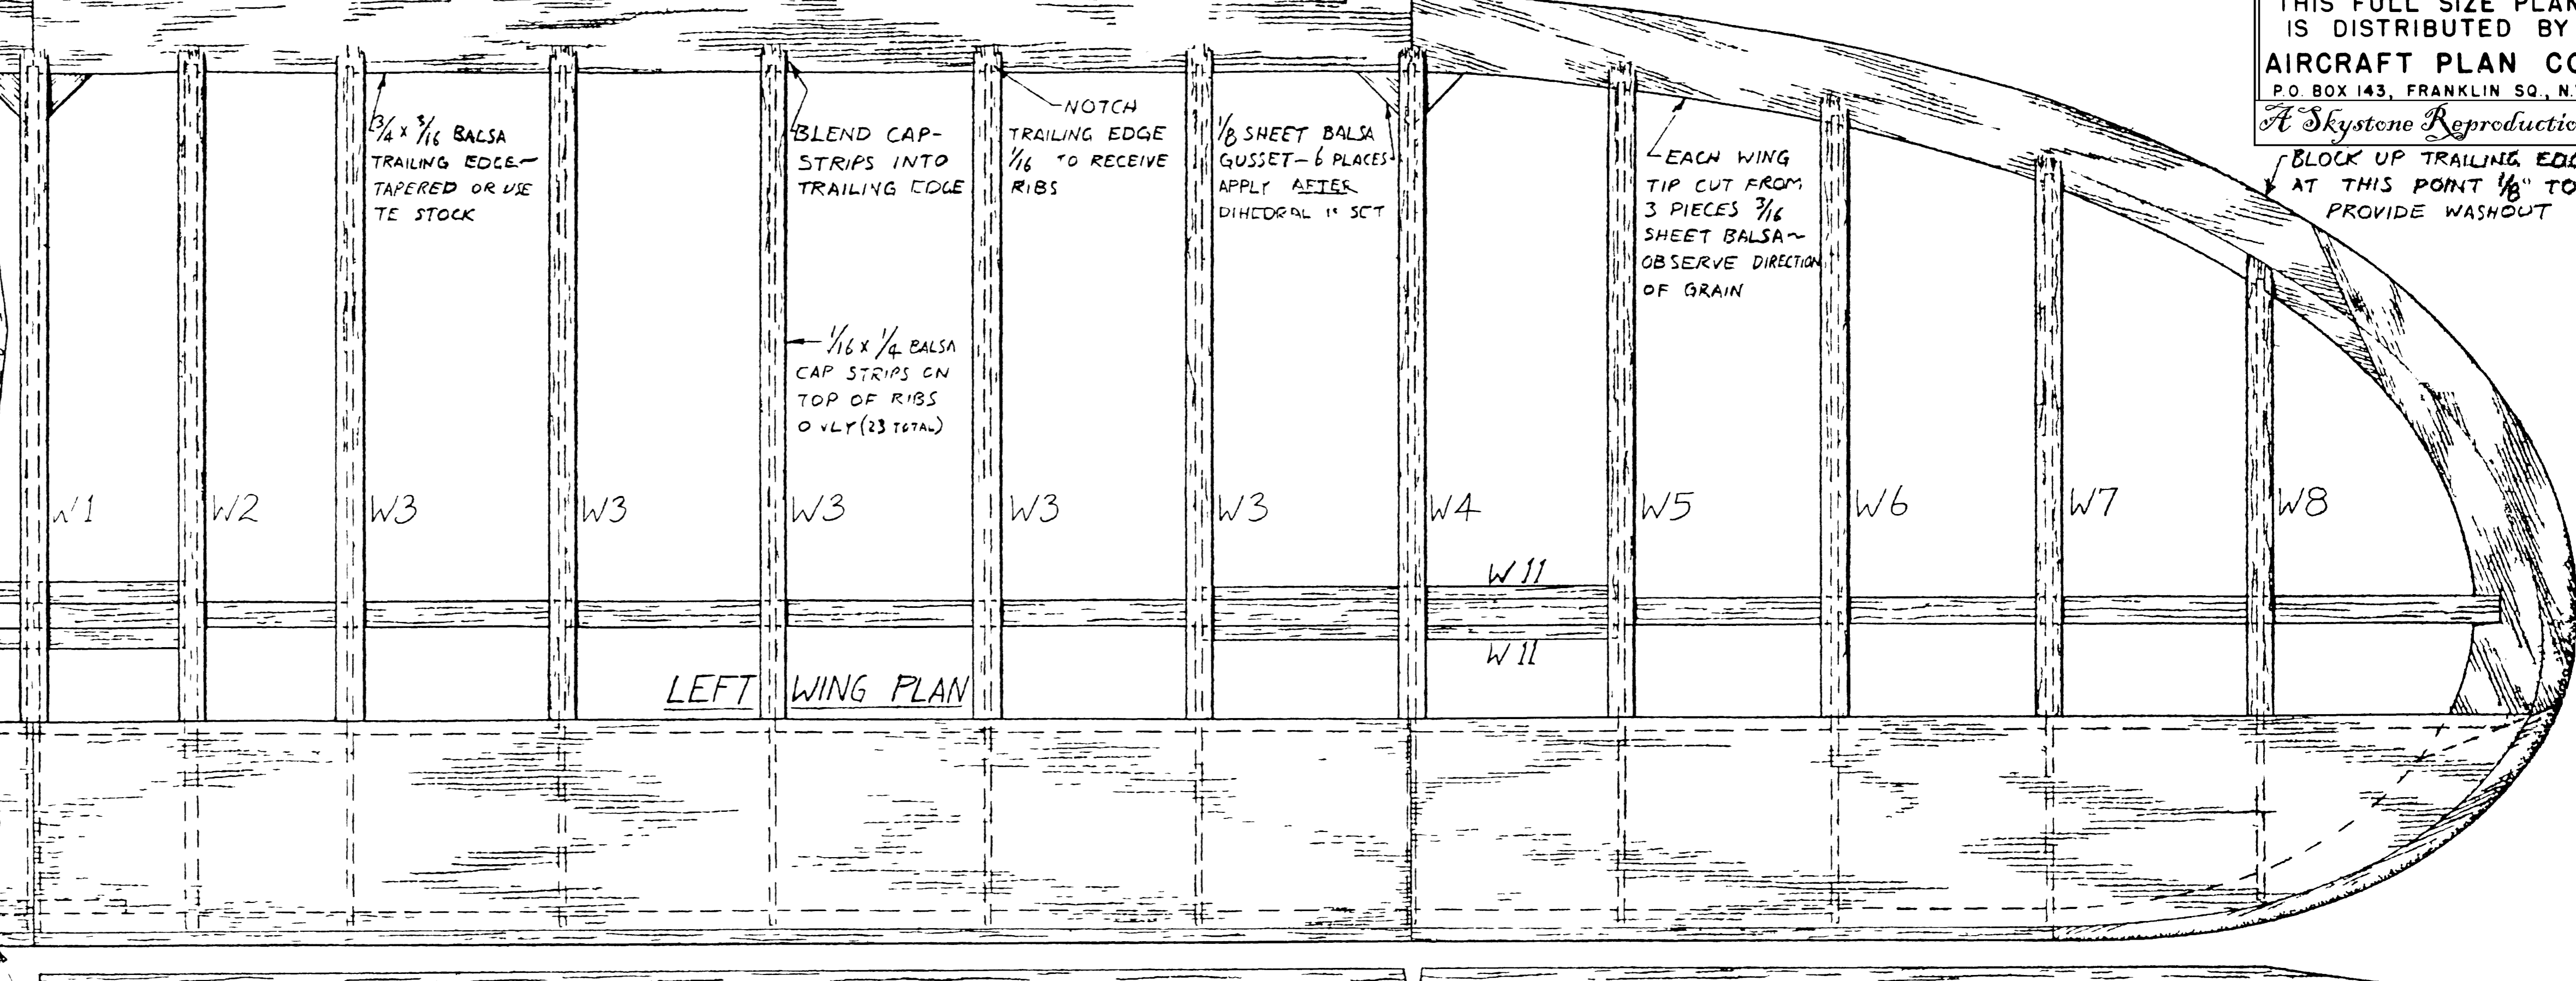 THIS FULL SIZE PLAN
IS DISTRIBUTED BY
AIRCRAFT PLAN CO
P.O. BOX 143, FRANKLIN SQ., N.
A Skystone Reproductio
BLOCK UP TRAILING EDG
AT THIS POINT 1/8" TO
PROVIDE WASHOUT
3/4 x 3/16 BALSA
TRAILING EDGE~
TAPERED OR USE
TE STOCK
BLEND CAP-
STRIPS INTO
TRAILING EDGE
NOTCH
TRAILING EDGE
1/16 TO RECEIVE
RIBS
1/8 SHEET BALSA
GUSSET - 6 PLACES
APPLY AFTER
DIHEDRAL IS SET
EACH WING
TIP CUT FROM
3 PIECES 3/16
SHEET BALSA~
OBSERVE DIRECTION
OF GRAIN
1/16 x 1/4 BALSA
CAP STRIPS ON
TOP OF RIBS
ONLY (23 TOTAL)
W1
W2
W3
W3
W3
W3
W3
W4
W5
W6
W7
W8
W11
W11
LEFT WING PLAN